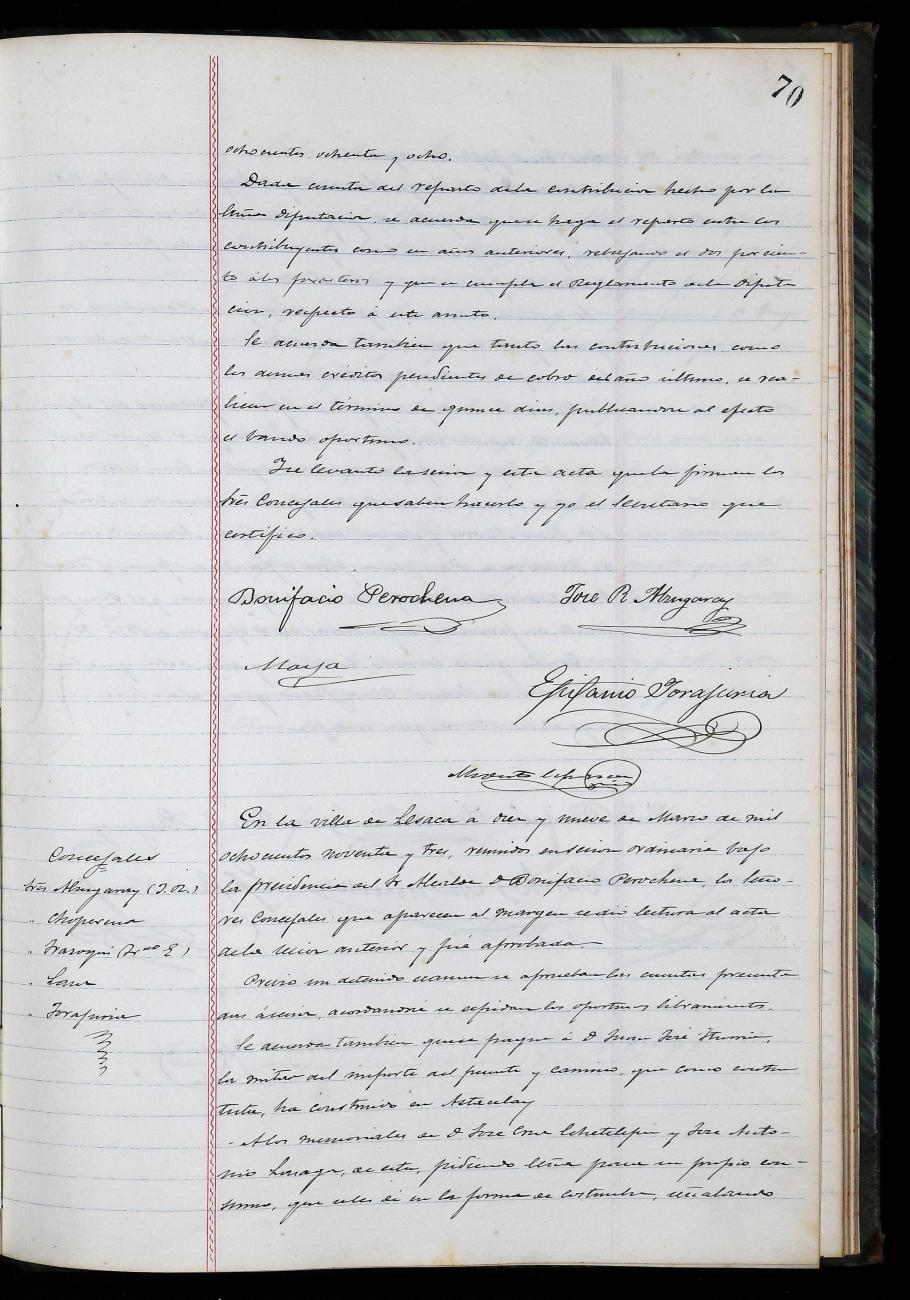 70
ochocientos ochenta y ocho.
Dada cuenta del reparto de la contribucion hecho por la
Exma Diputacion, se acuerda que se haga el reparto entre los
contribuyentes como en años anteriores, rebajando el dos por cien-
to á los forasteros y que se cumpla el Reglamento de la Diputa
cion, respecto á este asunto.
Se acuerda tambien que tanto las contribuciones como
los demas créditos pendientes de cobro del año último, se rea-
licen en el término de quince dias, publicandose al efecto
el bando oportuno.
Se levantó la sesion y esta acta que la firman los
Sres Concejales que saben hacerlo y yo el Secretario que
certifico.
Bonifacio Perochena
Jose R Abugaray
Maya
Epifanio Torajuria
Vicente
En la villa de Lesaca á diez y nueve de Marzo de mil
ochocientos noventa y tres, reunidos en sesion ordinaria bajo
la presidencia del Sr Alcalde D Bonifacio Perochena, los Seño-
res Concejales que aparecen al margen se dió lectura al acta
de la sesion anterior y fué aprobada.
Concejales
Sres Abugaray (J. R.)
" Choperena
"
"
" Torajuria
Previo un detenido examen se aprueban las cuentas presenta
das á sesion, acordandose se espidan los oportunos libramientos.
Se acuerda tambien que se pague á D Juan José
la mitad del importe del puente y camino, que como contra
tista, ha construido en
A los memoriales de D Jose Cruz y Jose Anto-
nio de esta, pidiendo leña para su propio con-
sumo, que se les dé en la forma de costumbre, señalando